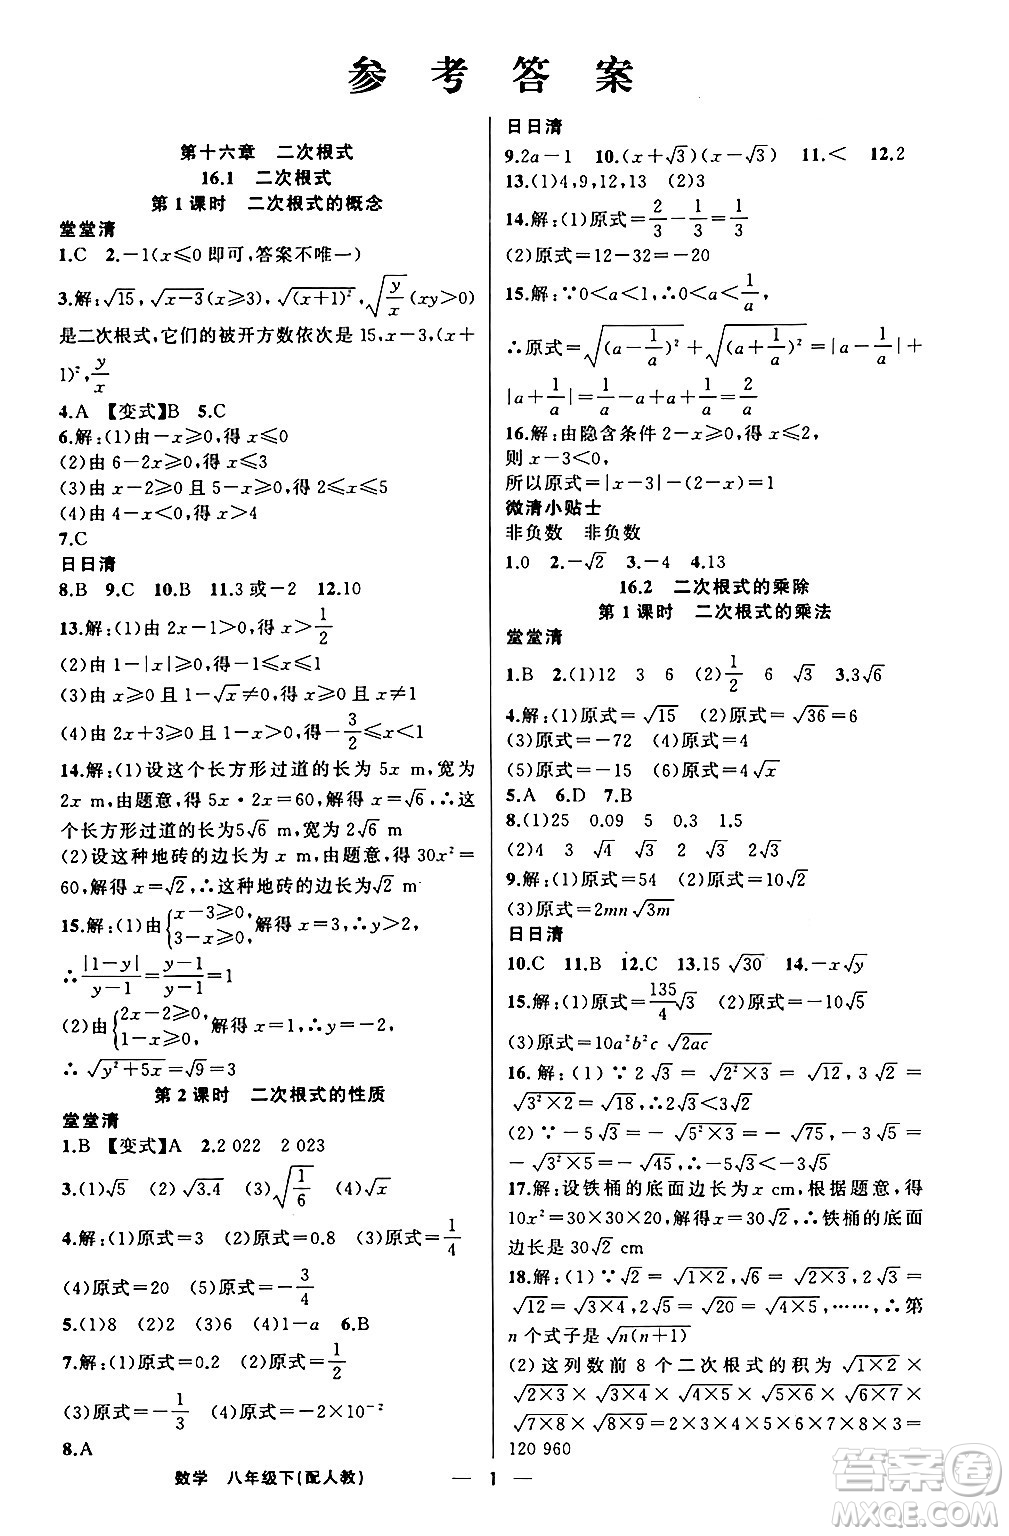 参考答案
第十六章 二次根式
16.1 二次根式
第1课时 二次根式的概念
堂堂清
1.C 2.－1(x⩽0即可,答案不唯一)
3.解:√15,√(x－3)(x⩾3),√((x＋1)²),√(y/x)(xy＞0)
是二次根式,它们的被开方数依次是15,x－3,(x＋
1)²,y/x
4.A 【变式】B 5.C
6.解:(1)由－x⩾0,得x⩽0
(2)由6－2x⩾0,得x⩽3
(3)由x－2⩾0且5－x⩾0,得2⩽x⩽5
(4)由4－x＜0,得x＞4
7.C
日日清
8.B 9.C 10.B 11.3或－2 12.10
13.解:(1)由2x－1＞0,得x＞1/2
(2)由1－|x|⩾0,得－1⩽x⩽1
(3)由x⩾0且1－√x≠0,得x⩾0且x≠1
(4)由2x＋3⩾0且x＜0,得－3/2⩽x＜0
14.解:(1)设这个长方形过道的长为5x m,宽为
2x m,由题意,得5x·2x＝60,解得x＝√6,∴这
个长方形过道的长为5√6 m,宽为2√6 m
(2)设这种地砖的边长为x m,由题意,得30x²＝
60,解得x＝√2,∴这种地砖的边长为√2 m
15.解:(1)由{x－3⩾0, 3－x⩾0, 解得x＝3,∴y＞2,
∴|1－y|/(y－1)＝(y－1)/(y－1)＝1
(2)由{2x－2⩾0, 1－x⩾0, 解得x＝1,∴y＝－2,
∴√(y²＋5x)＝√9＝3
第2课时 二次根式的性质
堂堂清
1.B 【变式】A 2.2 022 2 023
3.(1)√5 (2)√3.4 (3)√(1/6) (4)√x
4.解:(1)原式＝3 (2)原式＝0.8 (3)原式＝1/4
(4)原式＝20 (5)原式＝－3/4
5.(1)8 (2)2 (3)6 (4)1－a 6.B
7.解:(1)原式＝0.2 (2)原式＝6
(3)原式＝－1/3 (4)原式＝－2×10⁻²
8.A
日日清
9.2a－1 10.(x＋√3)(x－√3) 11.＜ 12.2
13.(1)4,9,12,13 (2)3
14.解:(1)原式＝2/3－1/3＝1/3
(2)原式＝12－32＝－20
15.解:∵0＜a＜1,∴0＜a＜1/a,
∴原式＝√((a－1/a)²)＋√((a＋1/a)²)＝|a－1/a|＋
|a＋1/a|＝1/a－a＋a＋1/a＝2/a
16.解:由隐含条件2－x⩾0,得x⩽2,
则x－3＜0,
所以原式＝|x－3|－(2－x)＝1
微清小贴士
非负数 非负数
1.0 2.－√2 3.－4 4.13
16.2 二次根式的乘除
第1课时 二次根式的乘法
堂堂清
1.B 2.(1)12 3 6 (2)1/2 6 √3 3.3√6
4.解:(1)原式＝√15 (2)原式＝√36＝6
(3)原式＝－72 (4)原式＝4
(5)原式＝－15 (6)原式＝4√x
5.A 6.D 7.B
8.(1)25 0.09 5 0.3 1.5
(2)4 3 √4 √3 2√3
9.解:(1)原式＝54 (2)原式＝10√2
(3)原式＝2mn√3m
日日清
10.C 11.B 12.C 13.15√30 14.－x√y
15.解:(1)原式＝135/4√3 (2)原式＝－10√5
(3)原式＝10a²b²c√2ac
16.解:(1)∵2√3＝√(2²×3)＝√12,3√2＝
√(3²×2)＝√18,∴2√3＜3√2
(2)∵－5√3＝－√(5²×3)＝－√75,－3√5＝
－√(3²×5)＝－√45,∴－5√3＜－3√5
17.解:设铁桶的底面边长为x cm,根据题意,得
10x²＝30×30×20,解得x＝30√2,∴铁桶的底面
边长是30√2 cm
18.解:(1)∵√2＝√(1×2),√6＝√(2×3),2√3＝
√12＝√(3×4),2√5＝√20＝√(4×5),……,∴第
n个式子是√(n(n＋1))
(2)这列数前8个二次根式的积为√(1×2)×
√(2×3)×√(3×4)×√(4×5)×√(5×6)×√(6×7)×
√(7×8)×√(8×9)＝1×2×3×4×5×6×7×8×3＝
120 960
数学 八年级下(配人教)
— 1 —
作业精灵